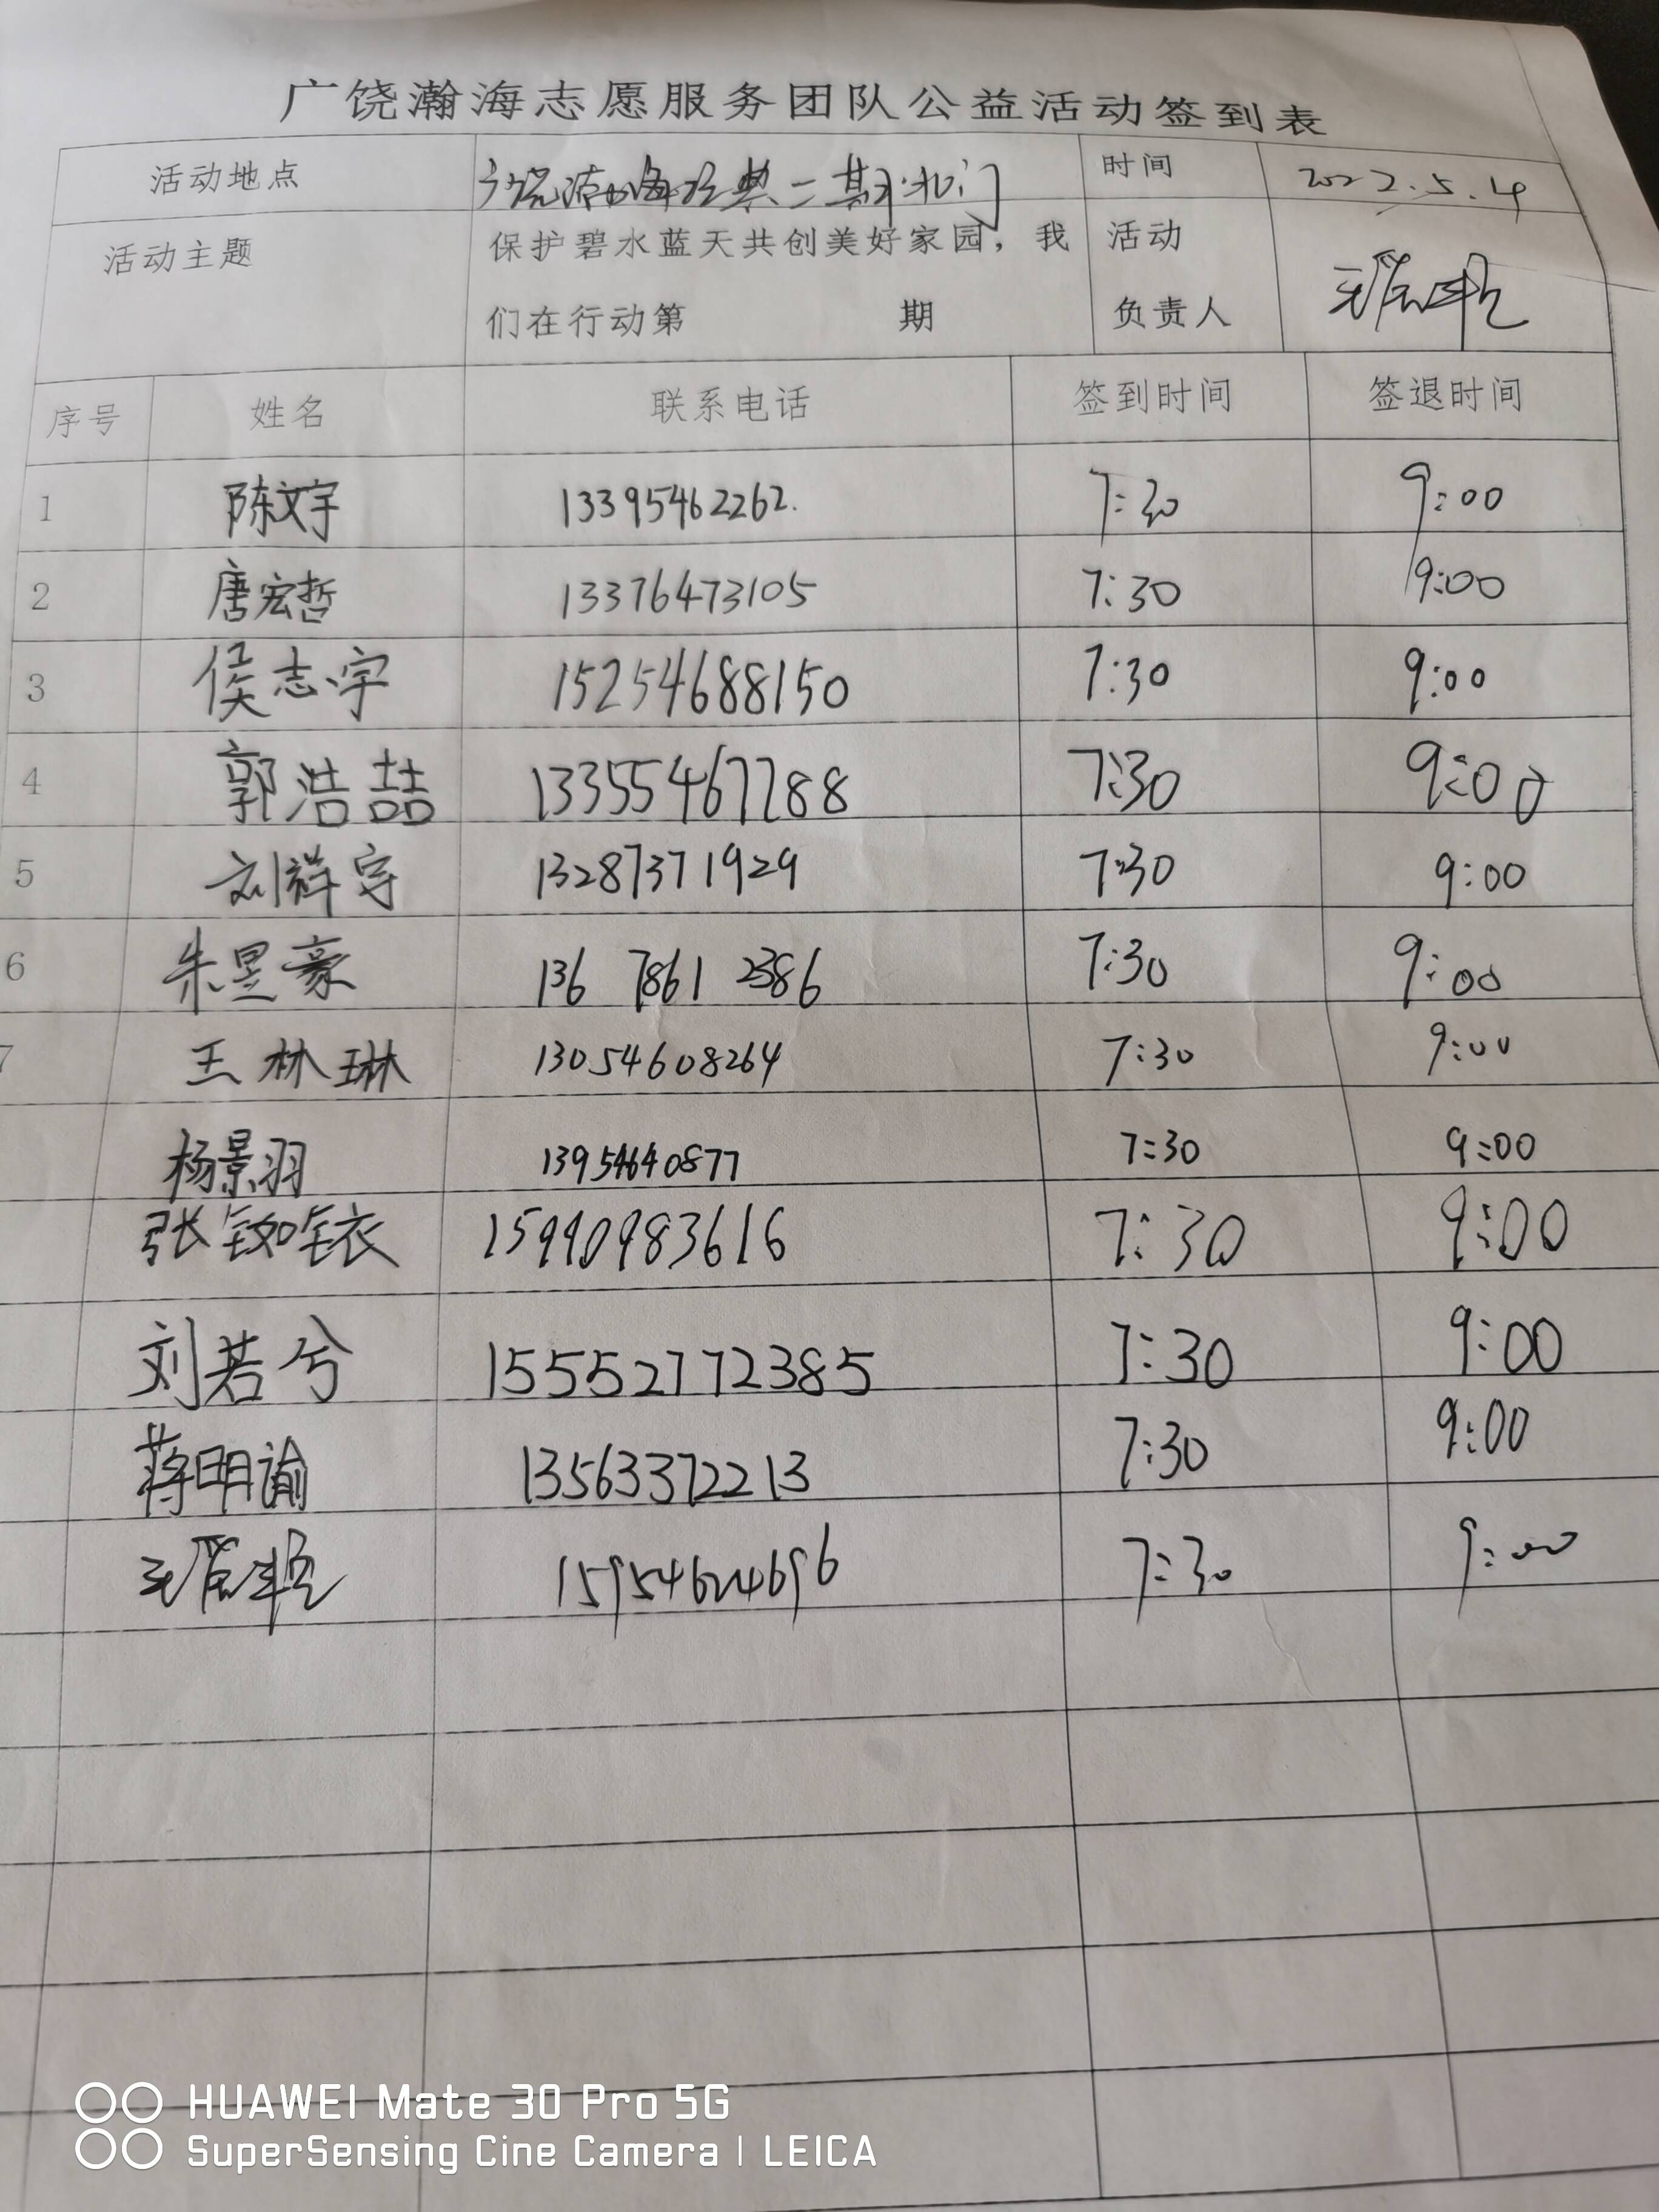 广饶瀚海志愿服务团队公益活动签到表
活动地点 广饶 海经典二期北门 时间 2022.5.4
活动主题 保护碧水蓝天共创美好家园，我 活动
们在行动第 期 负责人
序号 姓名 联系电话 签到时间 签退时间
1 陈文宇 13395462262. 7:30 9:00
2 唐宏哲 13376473105 7:30 9:00
3 侯志宇 15254688150 7:30 9:00
4 郭浩喆 13355467788 7:30 9:00
5 刘祥宇 13287371929 7:30 9:00
6 朱昱豪 136 7861 2386 7:30 9:00
7 王林琳 13054608264 7:30 9:00
杨景羽 13954640877 7:30 9:00
张铷铱 15990983616 7:30 9:00
刘若兮 15552772385 7:30 9:00
蒋明谕 13563372213 7:30 9:00
15954624696 7:30 9:00
HUAWEI Mate 30 Pro 5G
SuperSensing Cine Camera | LEICA